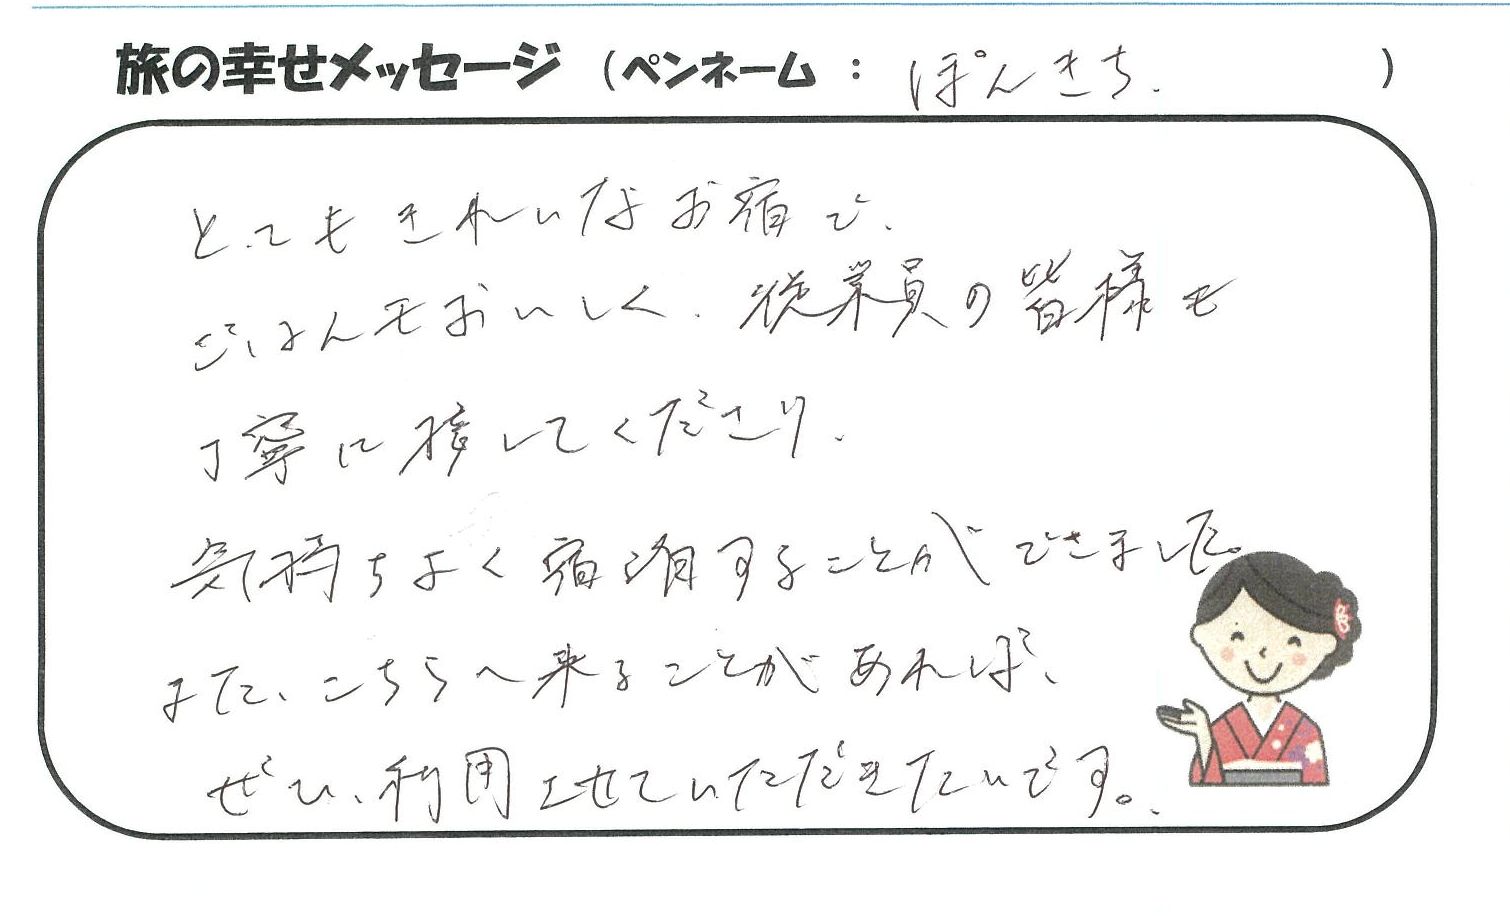 旅の幸せメッセージ (ペンネーム : ぽんきち. )
とてもきれいなお宿で、
ごはんもおいしく、従業員の皆様も
丁寧に接してくださり、
気持ちよく宿泊することができました。
また、こちらへ来ることがあれば、
ぜひ、利用させていただきたいです。